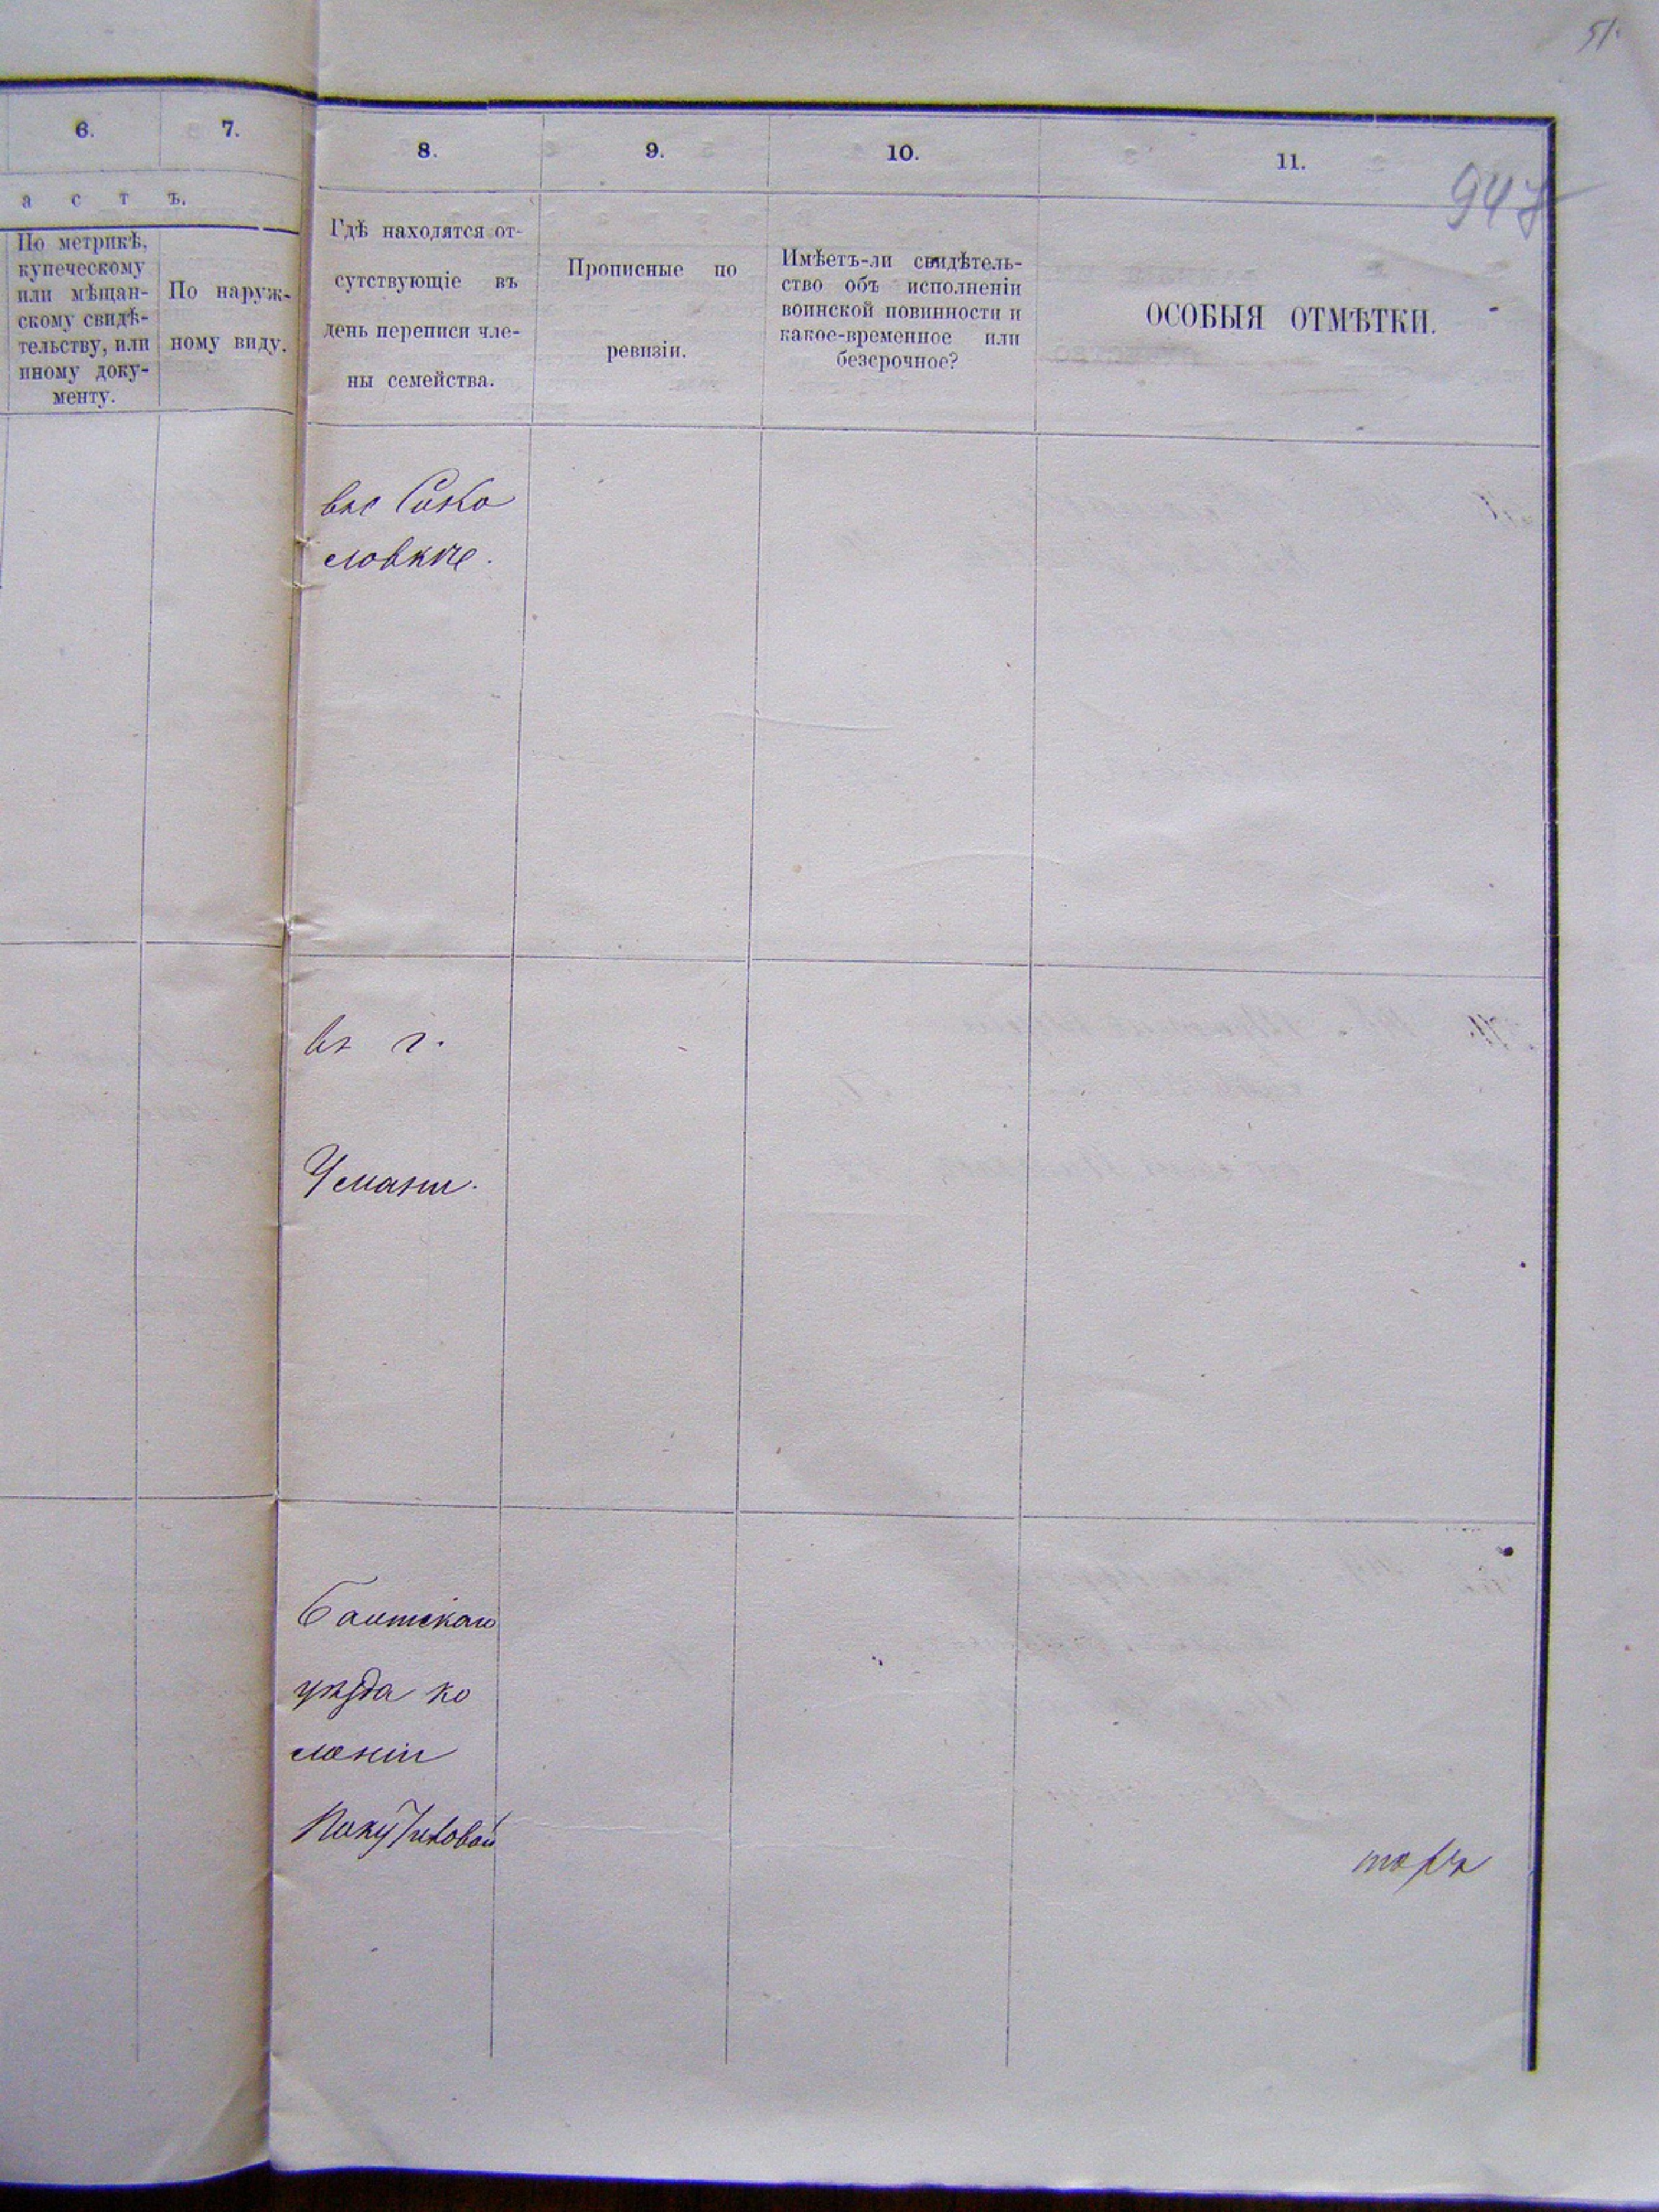 51.
6.
7.
8.
9.
10.
11.
947
а с т ъ.
По метрикѣ,
купеческому
или мѣщан-
скому свидѣ-
тельству, или
иному доку-
менту.
По наруж-
ному виду.
Гдѣ находятся от-
сутствующіе въ
день переписи чле-
ны семейства.
Прописные по
ревизіи.
Имѣетъ-ли свидѣтель-
ство объ исполненіи
воинской повинности и
какое-временное или
безсрочное?
ОСОБЫЯ ОТМѢТКИ.
въ с Соко
ловкѣ.
въ г.
Умани.
Балтскаго
уѣзда ко
лоніи